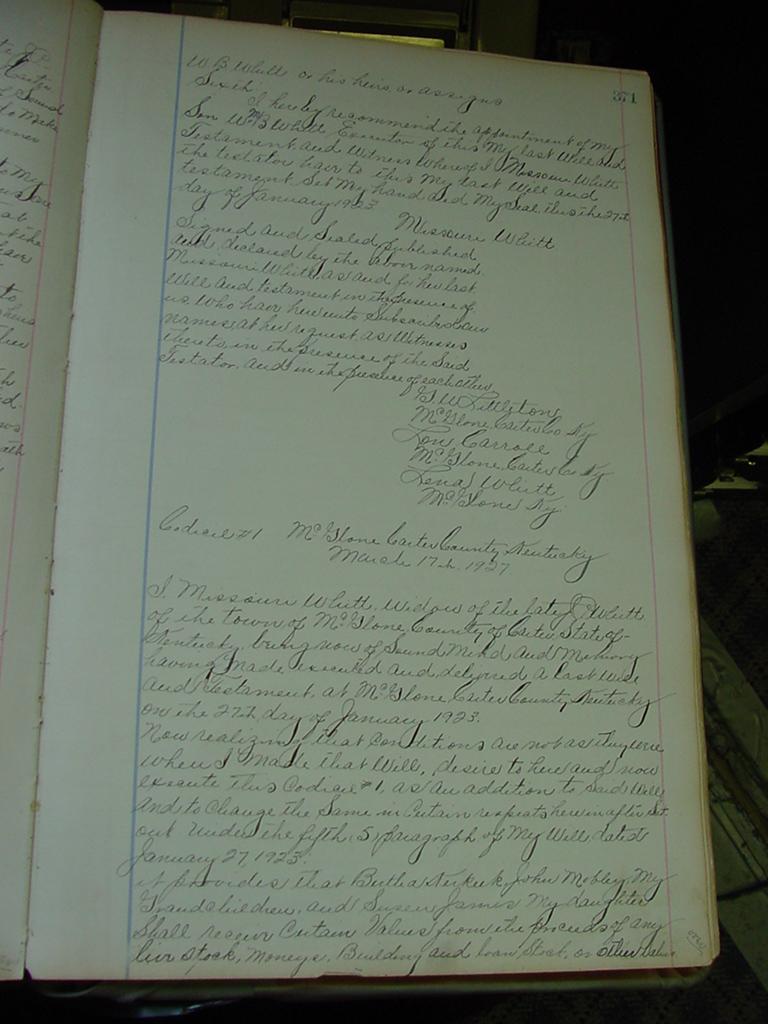 371
W B Whitt or his heirs or assigns
Sixth I hereby recommend the appointment of my
Son Wm B Whitt Executor of this My last Will and
Testament and Witness Whereof I Missouri Whitt
the testator have to this My last Will and
testament Set My hand and My Seal this the 27th
day of January 1923
Missouri Whitt
Signed and Sealed published
and declared by the above named
Missouri Whitt as and for her last
Will and testament in the presence of
us Who have hereunto Subscribed our
names at her request as Witnesses
thereto, in the presence of the Said
Testator, and in the presence of each other
G W Littleton
McGlone Carter Co Ky
Lon Carroll
McGlone Carter Co Ky
Lena Whitt
McGlone Ky
Codicil #1 McGlone Carter County Kentucky
March 17th 1927
I Missouri Whitt, Widow of the late Whitt
of the town of McGlone County of Carter State of
Kentucky, being now of Sound Mind and Memory
having Made executed and delivered a last Will
and Testament, at McGlone Carter County Kentucky
on the 27th day of January 1923.
Now realizing that Conditions are not as they were
when I Made that Will, desire to here and now
execute this Codicil #1, as an addition to Said Will
and to Change the Same in Certain respects herein after Set
out Under the fifth (5) paragraph of My Will dated
January 27, 1923.
it provides that John Mobley My
Grandchildren, and Susen James My daughter
Shall receive Certain Values from the proceeds of any
live stock, Moneys, Building and loan Stock, or other value